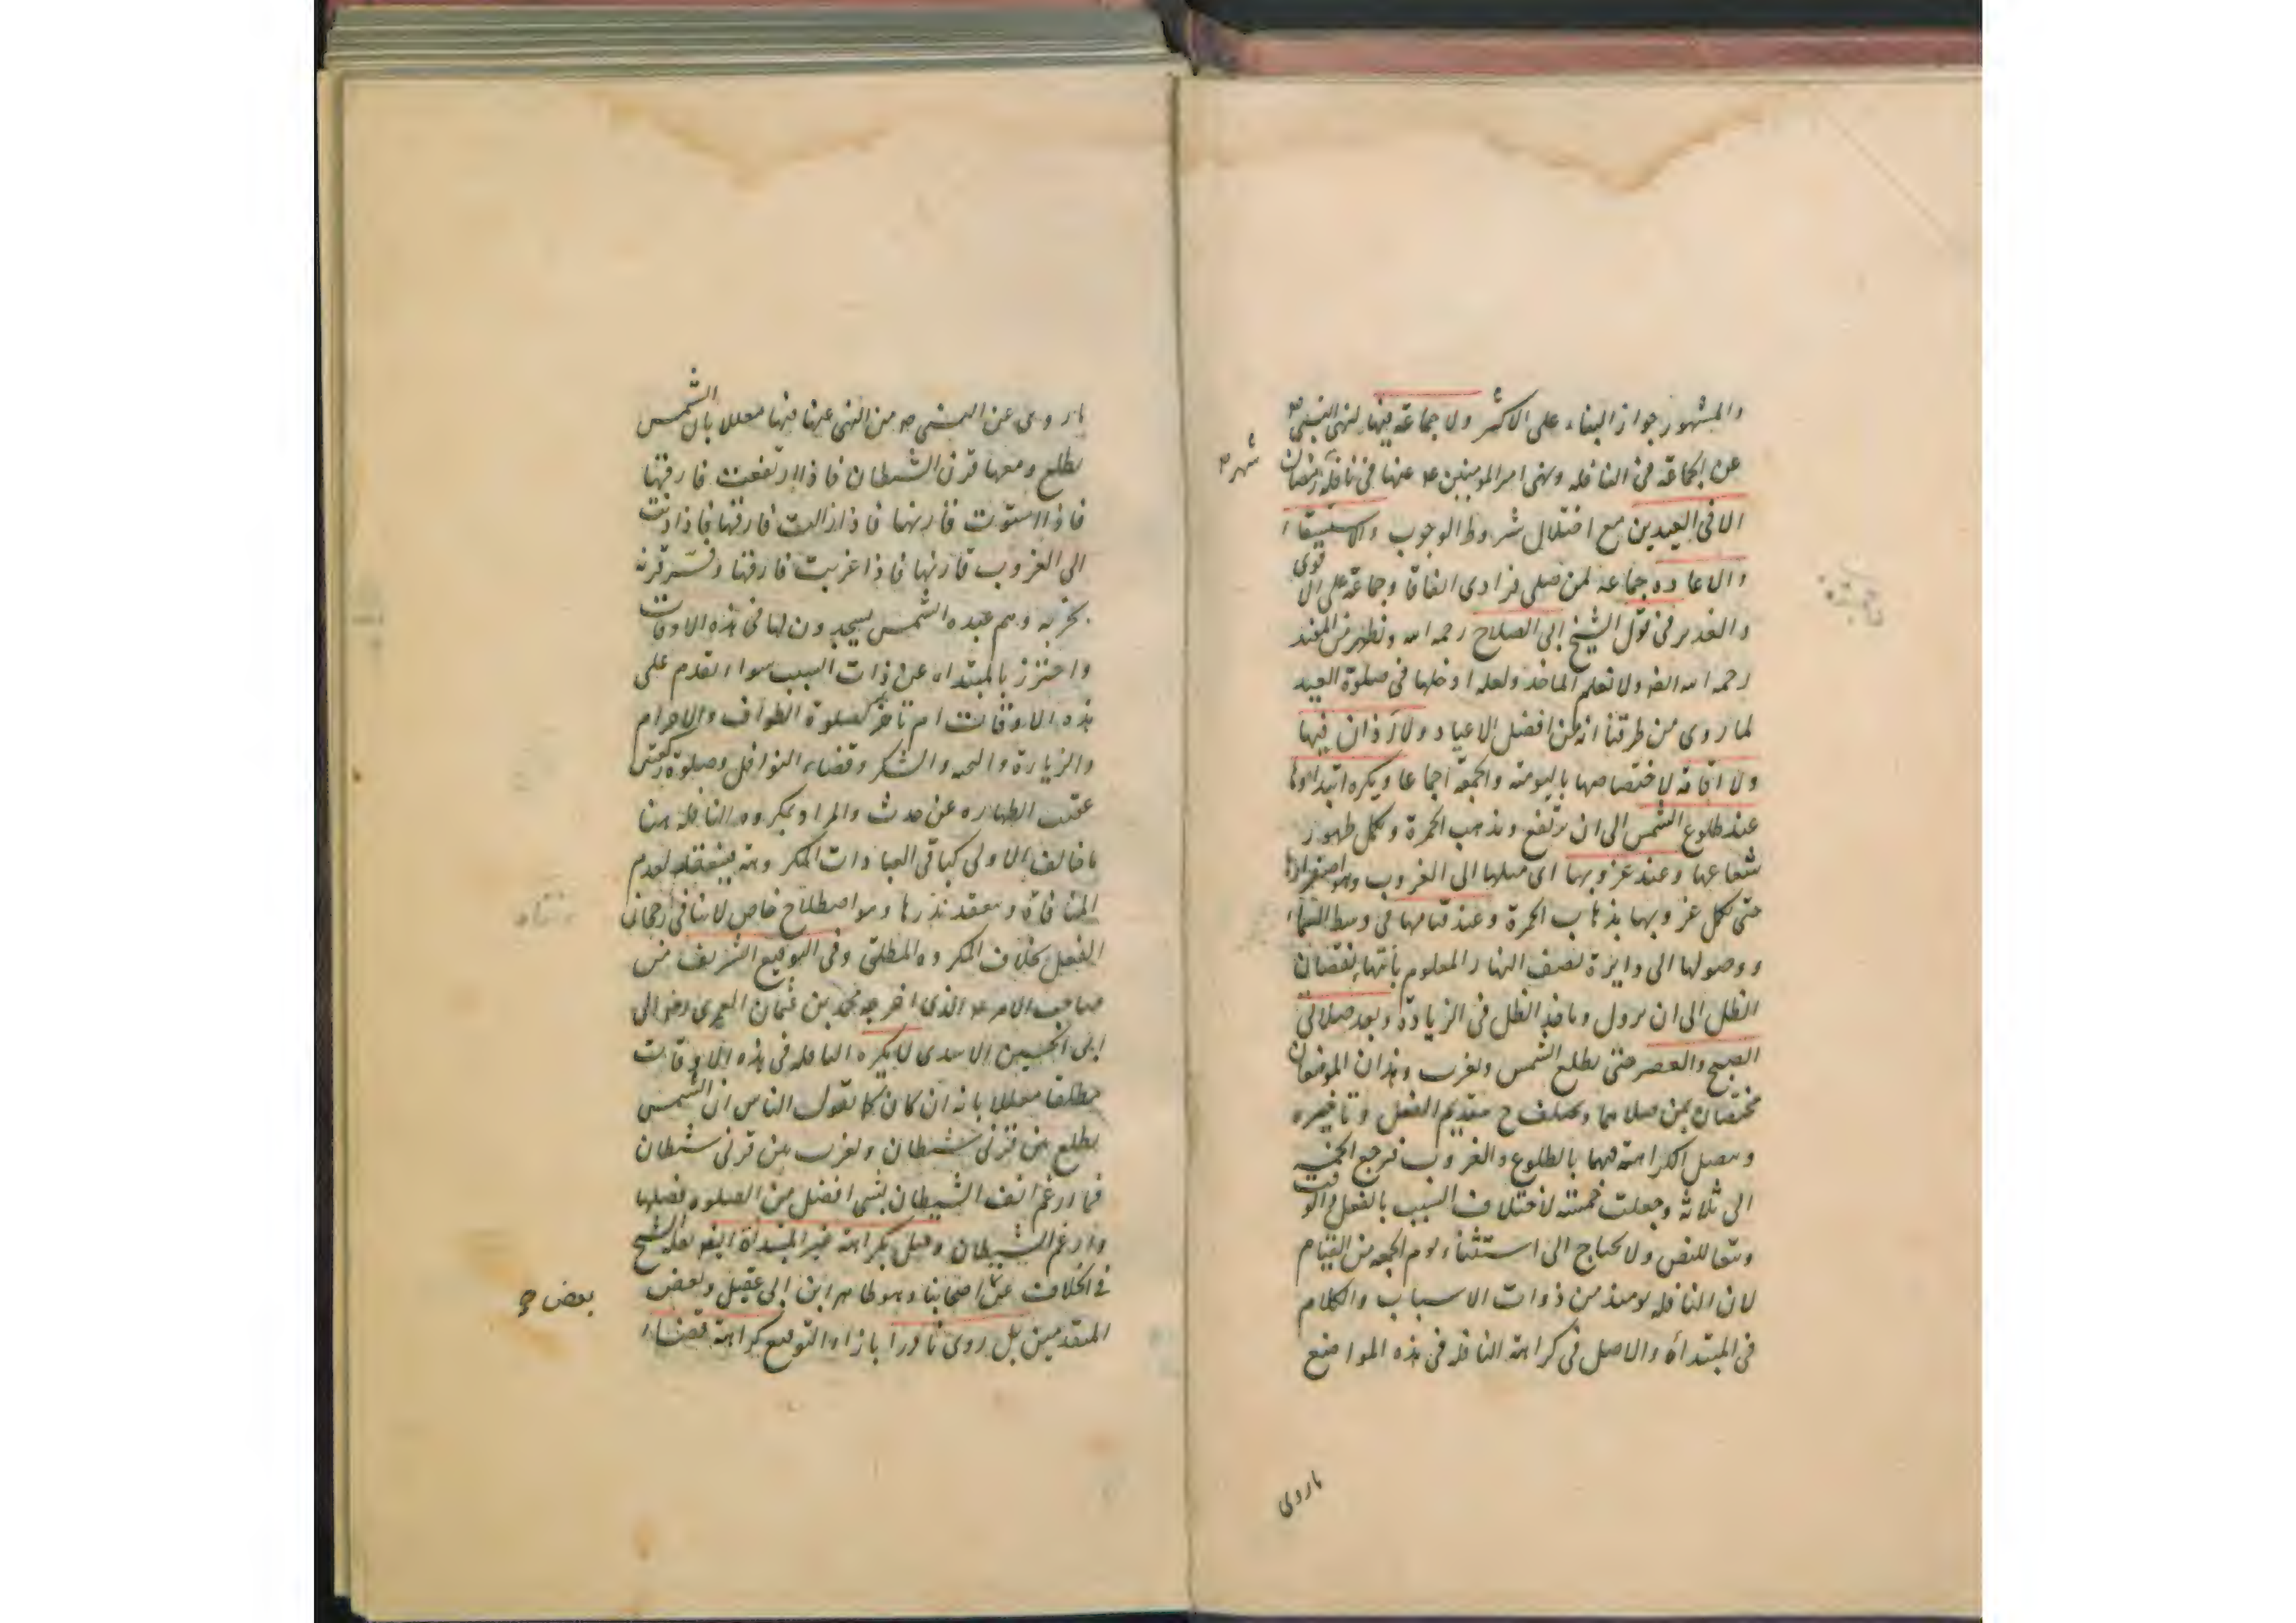 والمشهور جواز البناء على الاكثر ولا جماعة فيها لنهى النبى ص
عن الجماعة فى النافله ونهى امير المومنين ع عنها فى نافلة رمضان
شهر
الا فى العيدين مع اختلال شروط الوجوب والاستسقاء
والاعاده جماعة لمن صلى فرادى اتفاقا وجماعة على الاقوى
والغدير فى قول الشيخ ابى الصلاح رحمه الله ونظهر من المفيد
رحمه الله ايضا ولا نعلم الماخذ ولعله ادخلها فى صلوة العيد
لما روى من طرقنا انه من افضل الاعياد ولا اذان فيها
ولا اقامة لاختصاصها باليومية والجمعة اجماعا ويكره ابتداوها
عند طلوع الشمس الى ان ترتفع وتذهب الحمرة وتكمل ظهور
شعاعها وعند غروبها اى ميلها الى الغروب وهو اصفرارها
حتى تكمل غروبها بذهاب الحمرة وعند قيامها فى وسط السماء
ووصولها الى دايرة نصف النهار المعلوم بانتهاء نقصان
الظل الى ان تزول وياخذ الظل فى الزيادة وبعد صلاتى
الصبح والعصر حتى تطلع الشمس وتغرب وهذان الموضعان
مختصان بمن صلاهما وتختلف ح بتقديم الفعل وتاخيره
وتتصل الكراهة فيهما بالطلوع والغروب فترجع الخمسة
الى ثلاثة وجعلت خمسة لاختلاف السبب بالفعل والوقت
وتبعا للنص ولا يحتاج الى استثناء يوم الجمعه من القيام
لان النافله يومئذ من ذوات الاسباب والكلام
فى المبتدأة والاصل فى كراهة النافلة فى هذه المواضع
ماروى
ماروى عن النبى ص من النهى عنها فيها معللا بان الشمس
تطلع ومعها قرن الشيطان فاذا ارتفعت فارقها
فاذا استوت قارنها فاذا زالت فارقها فاذا دنت
الى الغروب قارنها فاذا غربت فارقها وفسر قرنه
بحزبه وهم عبده الشمس يسجدون لها فى هذه الاوقات
واحترز بالمبتداه عن ذات السبب سواء تقدم على
هذه الاوقات ام تاخر كصلوة الطواف والاحرام
والزيارة والتحية والشكر وقضاء النوافل وصلوة ركعتين
عقيب الطهاره عن حدث والمراد بمكروه النافله هنا
ما خالف الاولى كباقى العبادات المكروهة فينعقد لعدم
المنافاة وينعقد نذرها وهو اصطلاح خاص لا ينافى رجحان
الفعل بخلاف المكروه المطلق وفى التوقيع الشريف من
صاحب الامر ع الذى اخرجه محمد بن عثمان العمرى رض الى
ابى الحسين الاسدى لا يكره النافله فى هذه الاوقات
مطلقا معللا بانه ان كان كما تقول الناس ان الشمس
تطلع من قرنى شيطان وتغرب من قرنى شيطان
فما ارغم انف الشيطان بشى افضل من الصلوه فصلها
وارغم الشيطان وقيل بكراهة غير المبتدأة ايضا نقله الشيخ
فى الخلاف عن اصحابنا وهو ظاهر ابن ابى عقيل وبعض
بعض
المتقدمين بل روى نادرا بازاء التوقيع كراهة قضاء